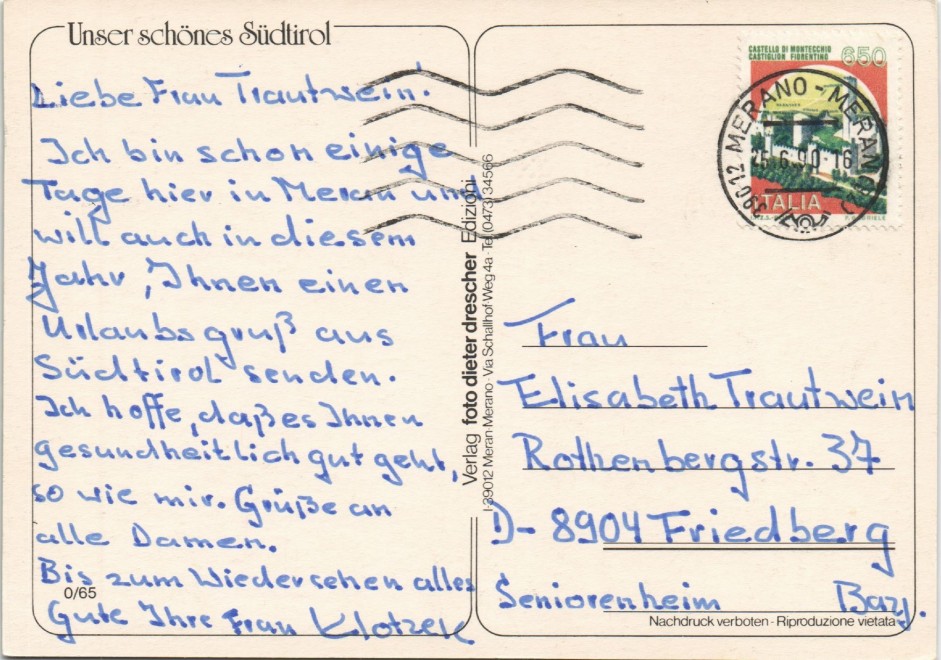 Unser schönes Südtirol
Liebe Frau Trautwein!
Ich bin schon einige
Tage hier in Meran und
will auch in diesem
Jahr, Ihnen einen
Urlaubsgruß aus
Südtirol senden.
Ich hoffe, daß es Ihnen
gesundheitlich gut geht,
so wie mir. Grüße an
alle Damen.
Bis zum Wiedersehen alles
Gute Ihre Frau Klotzek
0/65
Verlag foto dieter drescher Edizioni
I-39012 Meran-Merano · Via Schallhof-Weg 4a · Tel. (0473) 34566
CASTELLO DI MONTECCHIO
CASTIGLION FIORENTINO
650
ITALIA
39012 MERANO - MERAN
25.6.90-16
Frau
Elisabeth Trautwein
Rothenbergstr. 37
D-8904 Friedberg
Seniorenheim Bay.
Nachdruck verboten · Riproduzione vietata